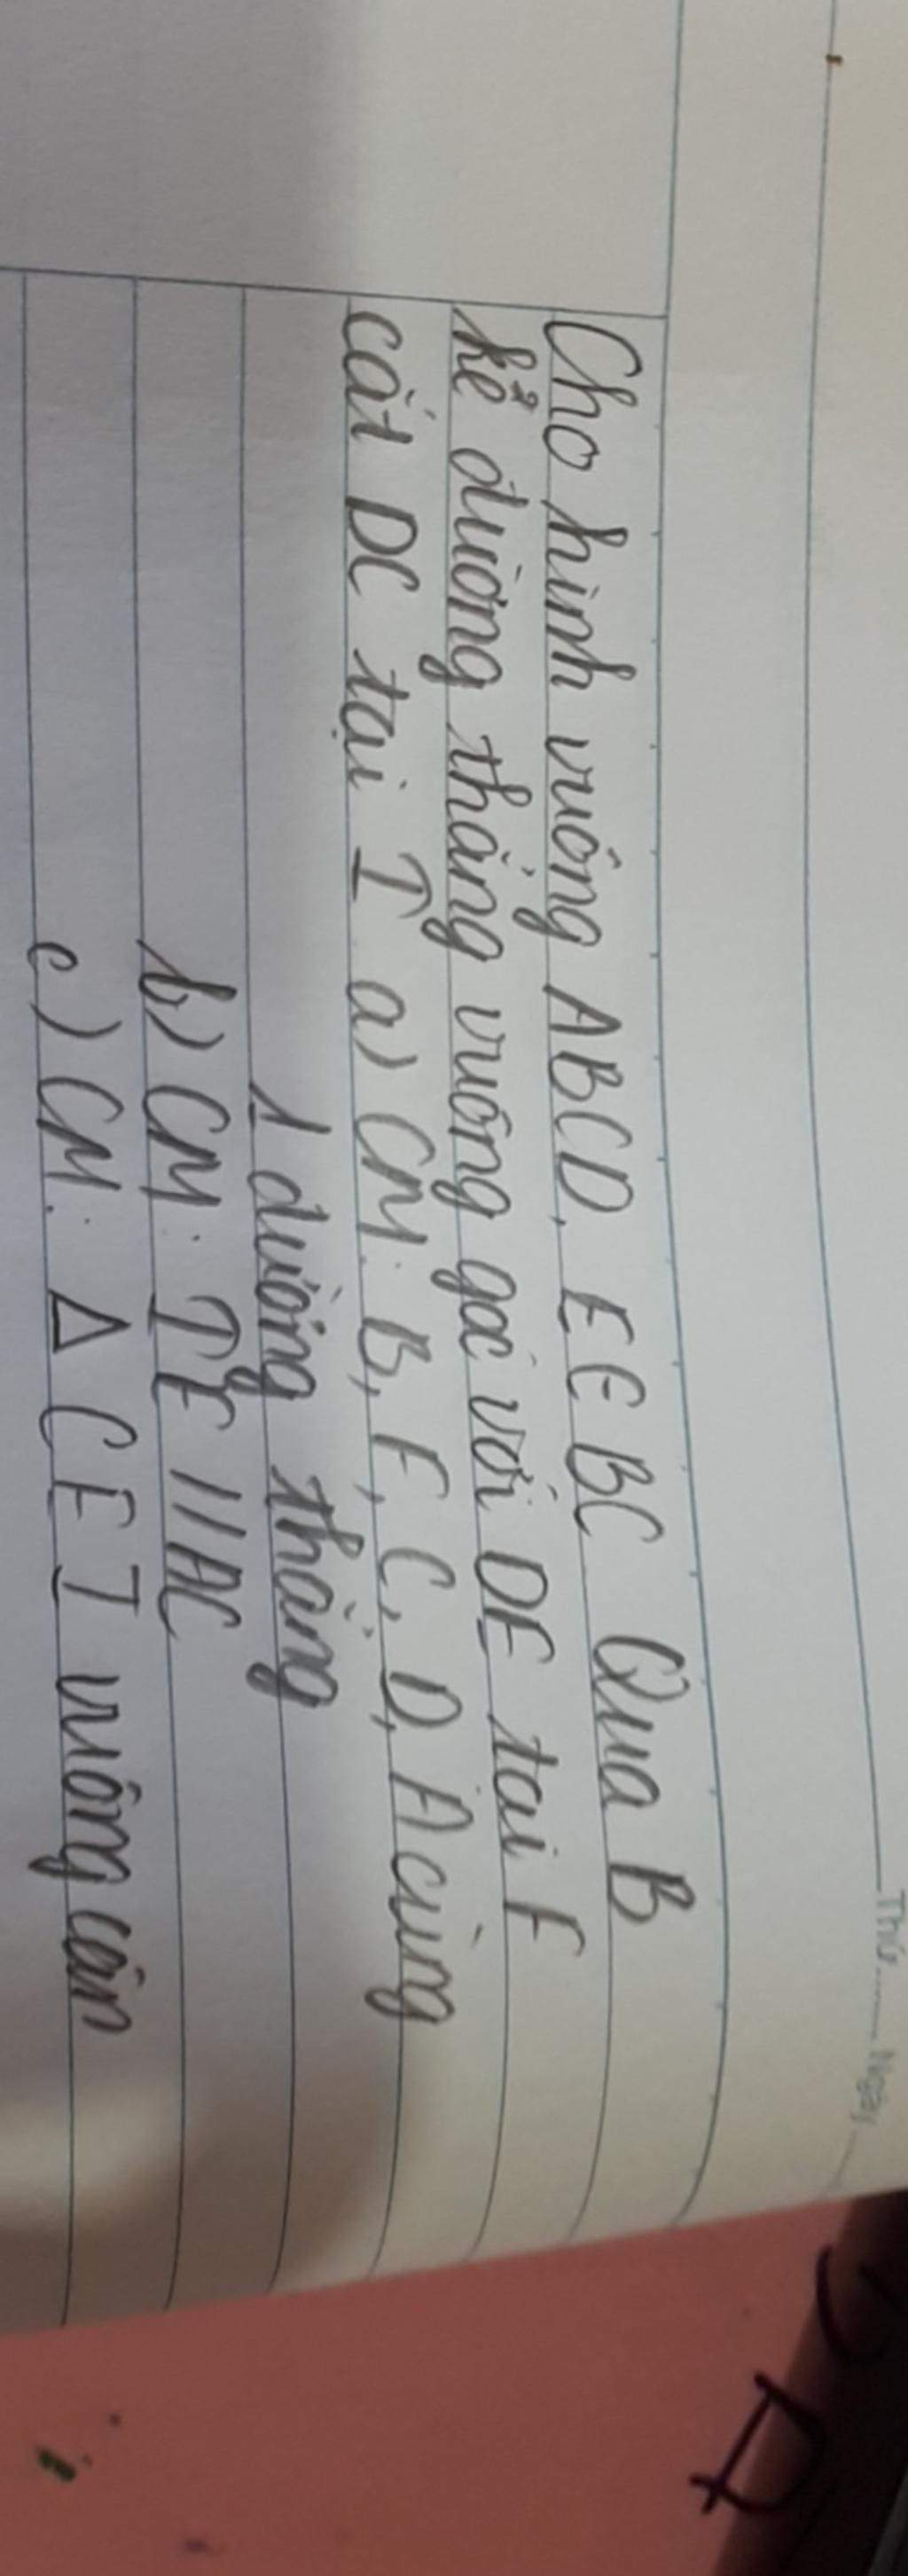 Thứ ...... Ngày
Cho hình vuông ABCD. E ∈ BC Qua B
kẻ đường thẳng vuông góc với DE tại F
cắt DC tại I a) CM: B, F, C, D, A cùng
1 đường thẳng
b) CM: IE // AC
c) CM: Δ CEI vuông cân